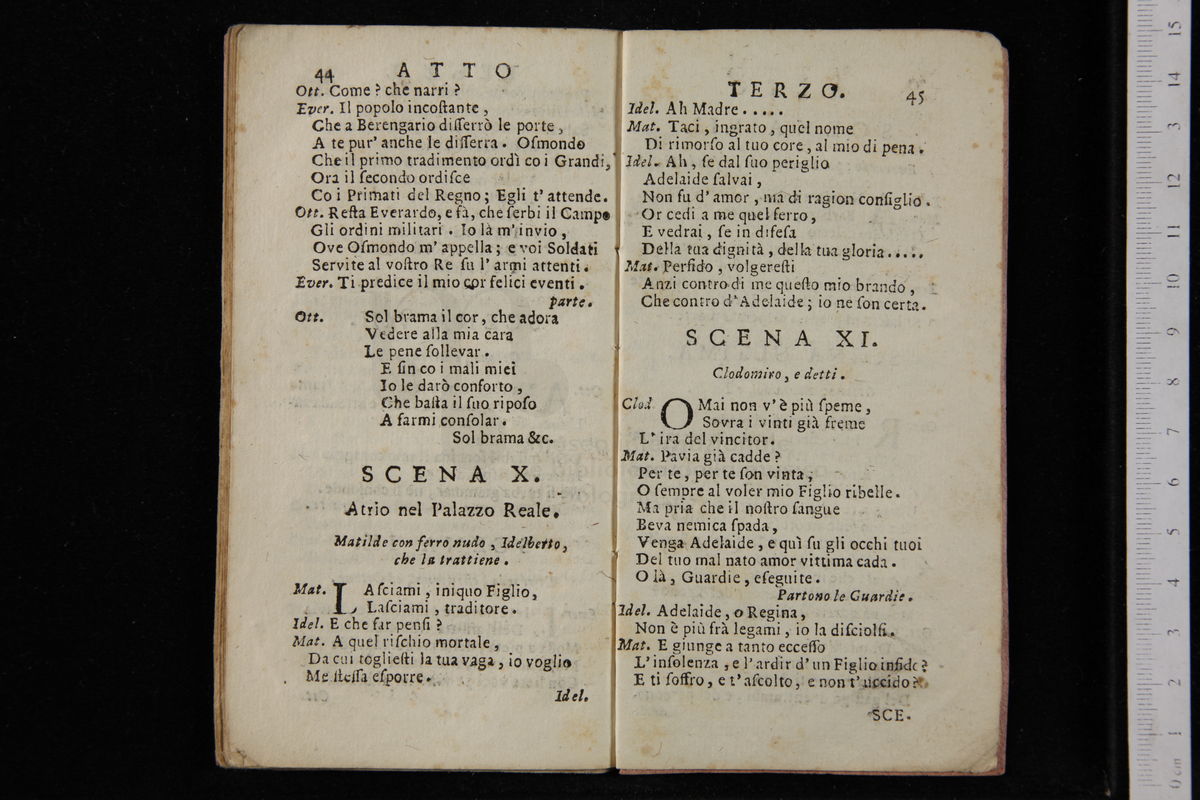 44 ATTO
Ott. Come ? che narri ?
Ever. Il popolo incoſtante ,
Che a Berengario diſſerrò le porte ,
A te pur' anche le diſſerra . Oſmondo
Che il primo tradimento ordì co i Grandi,
Ora il ſecondo ordiſce
Co i Primati del Regno ; Egli t' attende.
Ott. Reſta Everardo, e fà, che ſerbi il Campo
Gli ordini militari . Io là m' invio ,
Ove Oſmondo m' appella ; e voi Soldati
Servite al voſtro Re ſu l' armi attenti .
Ever. Ti predice il mio cor felici eventi .
parte.
Ott. Sol brama il cor, che adora
Vedere alla mia cara
Le pene ſollevar .
E ſin co i mali miei
Io le darò conforto ,
Che baſta il ſuo ripoſo
A farmi conſolar .
Sol brama &c.
SCENA X.
Atrio nel Palazzo Reale.
Matilde con ferro nudo , Idelberto,
che la trattiene .
Mat. LAſciami , iniquo Figlio,
Laſciami , traditore .
Idel. E che far penſi ?
Mat. A quel riſchio mortale ,
Da cui toglieſti la tua vaga , io voglio
Me ſteſſa eſporre .
Idel.
TERZO. 45
Idel. Ah Madre . . . . .
Mat. Taci , ingrato , quel nome
Di rimorſo al tuo core , al mio di pena .
Idel. Ah , ſe dal ſuo periglio
Adelaide ſalvai ,
Non fu d' amor , ma di ragion conſiglio .
Or cedi a me quel ferro ,
E vedrai , ſe in difeſa
Della tua dignità , della tua gloria . . . . .
Mat. Perfido , volgereſti
Anzi contro di me queſto mio brando ,
Che contro d' Adelaide ; io ne ſon certa .
SCENA XI.
Clodomiro , e detti .
Clod OMai non v' è più ſpeme ,
Sovra i vinti già freme
L' ira del vincitor.
Mat. Pavia già cadde ?
Per te , per te ſon vinta ,
O ſempre al voler mio Figlio ribelle .
Ma pria che il noſtro ſangue
Beva nemica ſpada ,
Venga Adelaide , e quì ſu gli occhi tuoi
Del tuo mal nato amor vittima cada .
O là , Guardie , eſeguite .
Partono le Guardie .
Idel. Adelaide , o Regina ,
Non è più frà legami , io la diſciolſi .
Mat. E giunge a tanto ecceſſo
L' inſolenza , e l' ardir d' un Figlio infido ?
E ti ſoffro , e t' aſcolto , e non t' uccido ?
SCE-